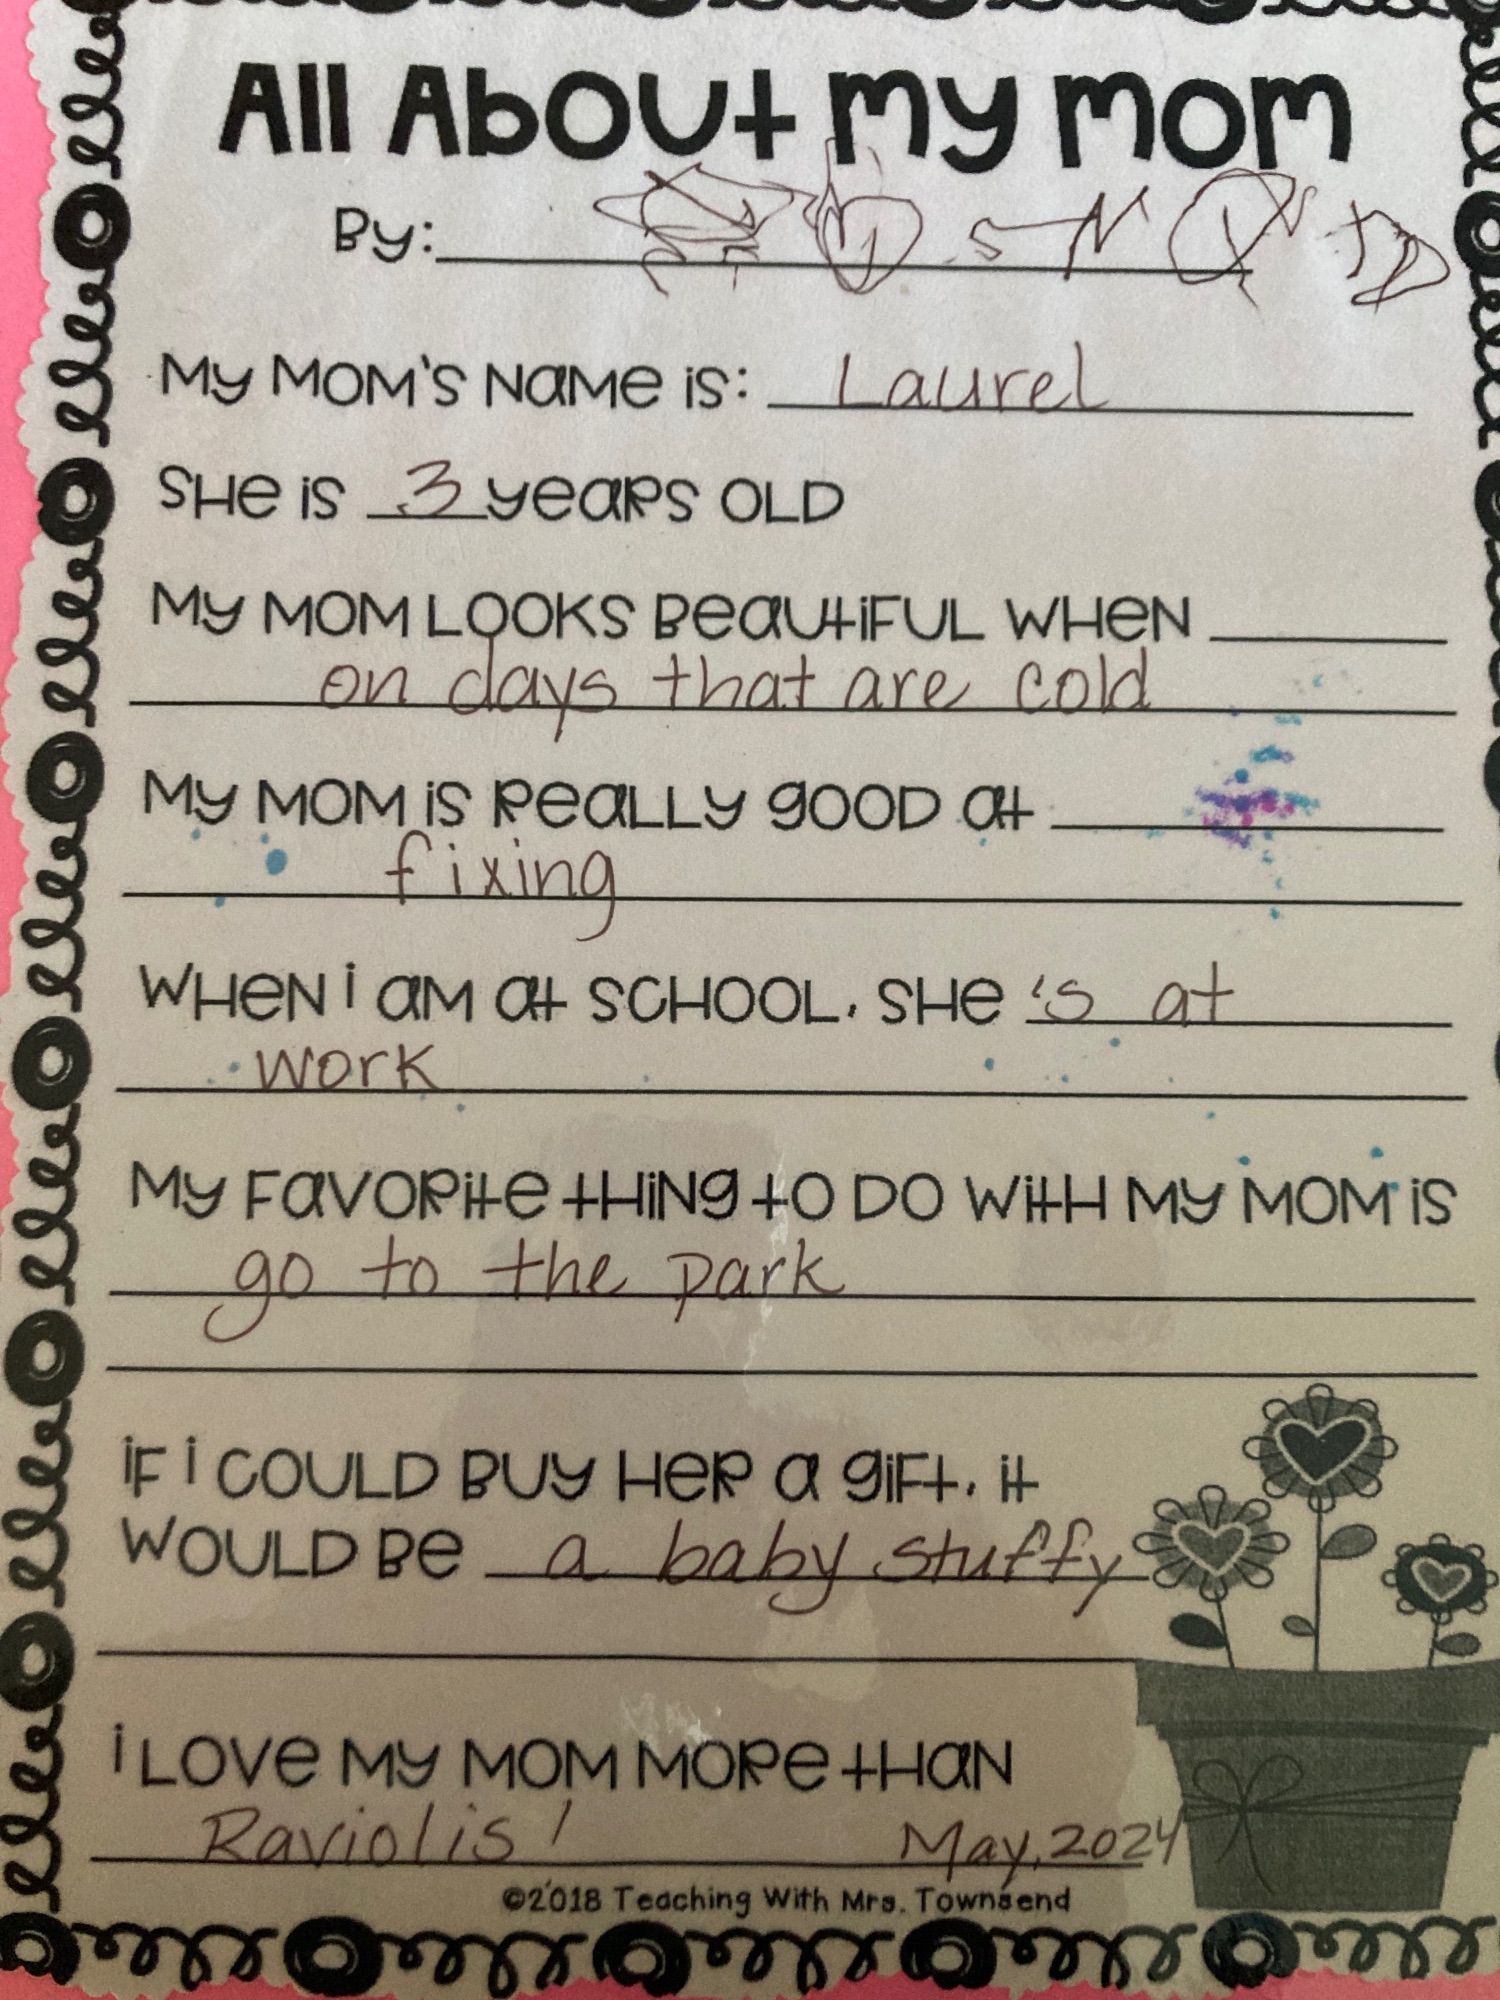 All About my mom
By:
My MOM'S Name is: Laurel
SHe is 3 years OLD
My MOM LOOKS Beautiful WHeN
on days that are cold
My MOM is Really good at
fixing
WHeN i am at SCHOOL, SHe 's at
work
My Favorite thing to DO With My MOM is
go to the park
if i COULD Buy Her a gift, it
WOULD Be a baby stuffy
i Love My MOM More than
Raviolis! May, 2024
©2018 Teaching With Mrs. Townsend